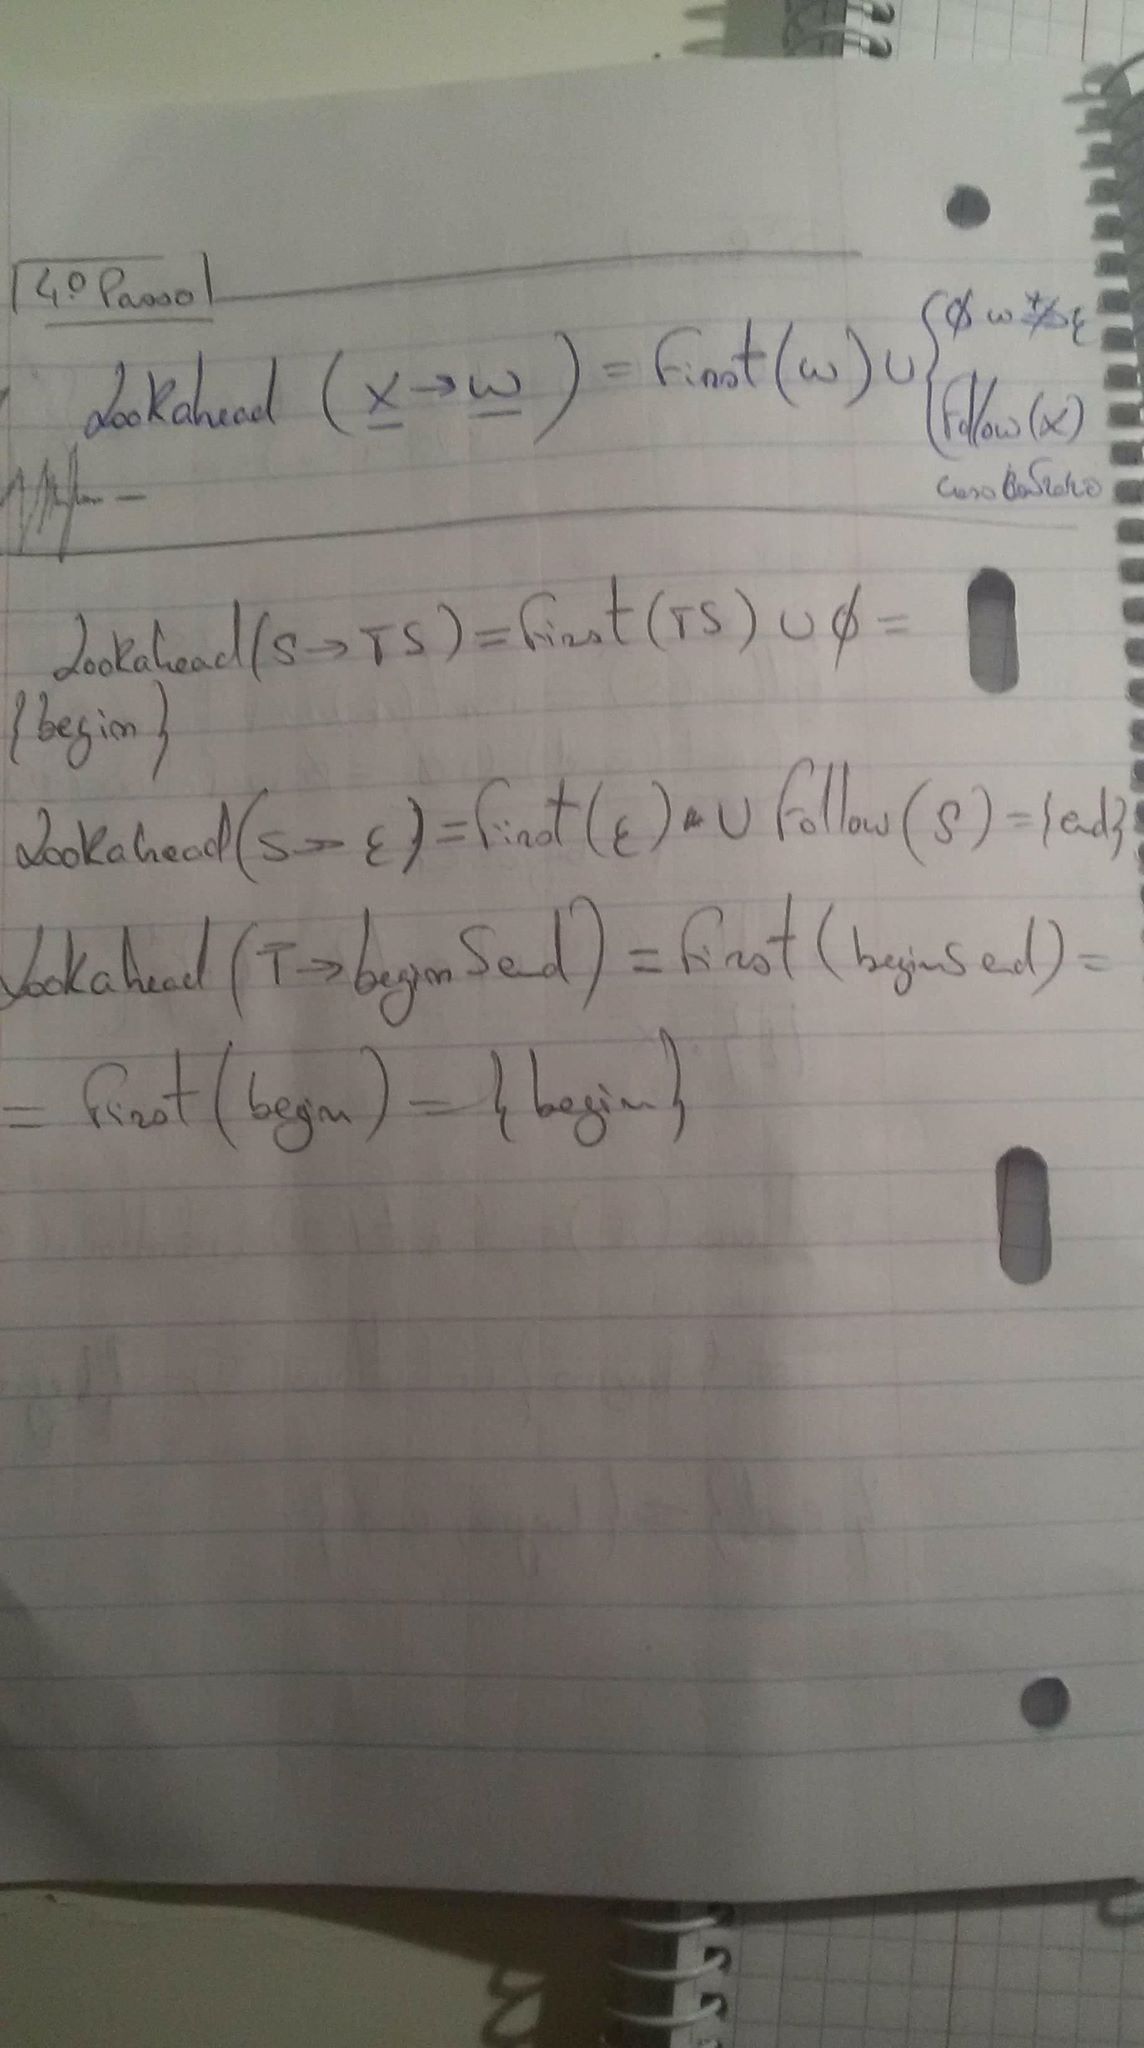 4.º Passo
Lookahead (X → w) = First(w) ∪ { ∅ w *⇏ ε
Follow(X)
caso contrário
Lookahead(S → TS) = First(TS) ∪ ∅ =
{begin}
Lookahead(S → ε) = First(ε) ∪ Follow(S) = {end}
Lookahead(T → begin S end) = First(begin S end) =
= First(begin) = {begin}